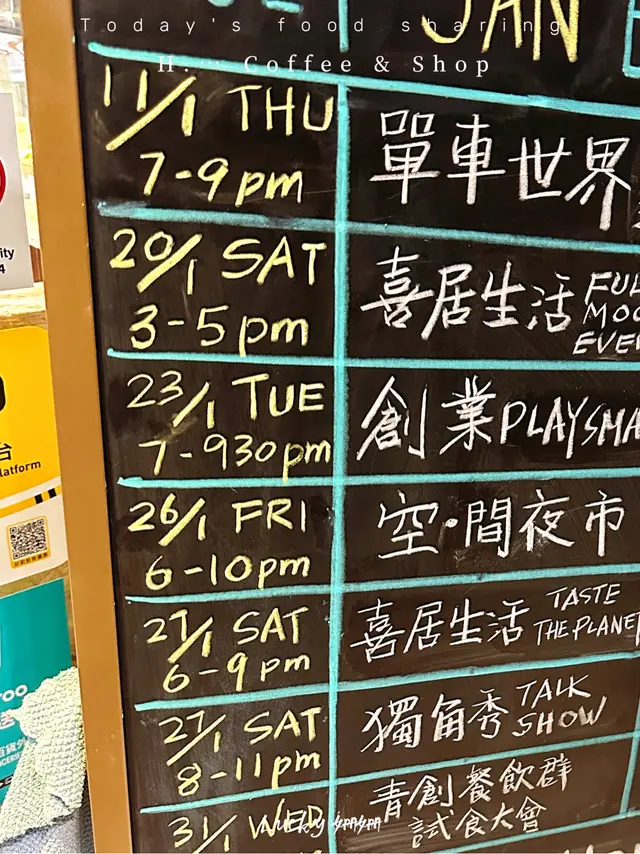 Today's food sharing
H.… Coffee & Shop
JAN
11/1 THU
7-9pm
單車世界
20/1 SAT
3-5pm
喜居生活
23/1 TUE
7-930pm
創業PLAYSMA
26/1 FRI
6-10pm
空·間夜市
27/1 SAT
6-9pm
喜居生活 TASTE
THE PLANET
27/1 SAT
8-11pm
獨角秀 TALK
SHOW
31/1 WED
青創餐飲群
試食大會
台
latform